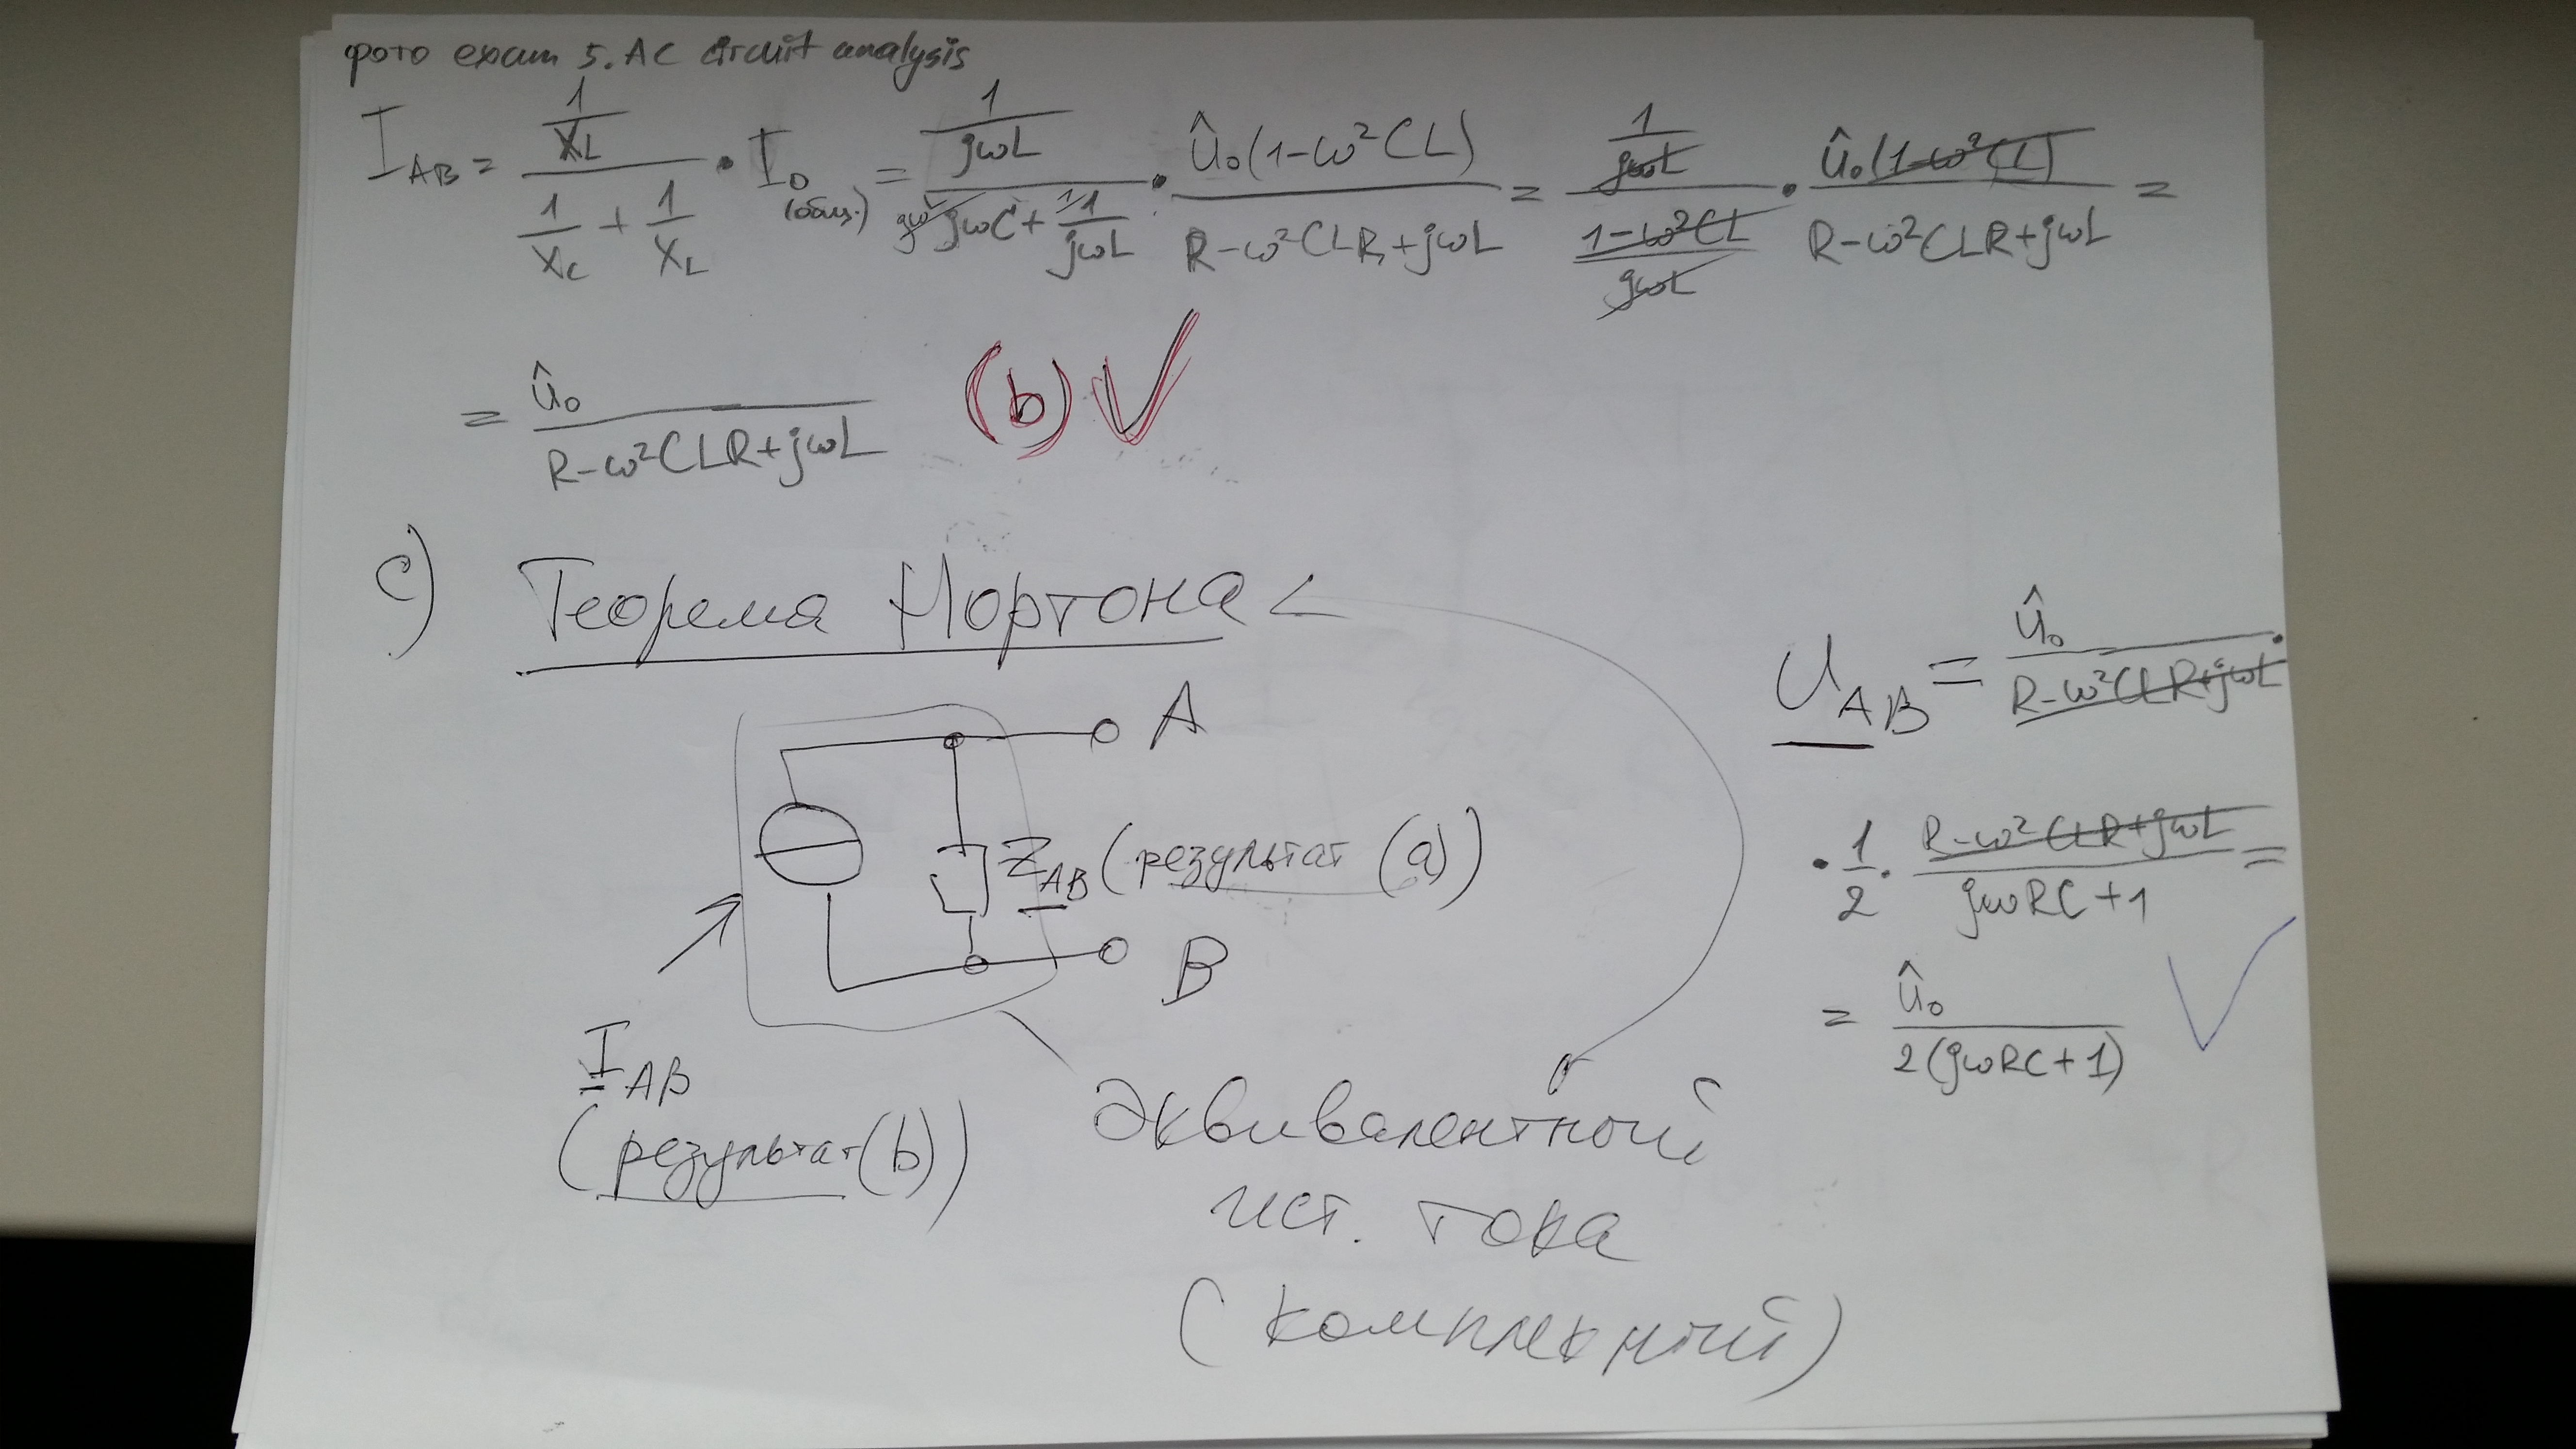 фото exam 5. AC circuit analysis
I_AB = (1/X_L)/(1/X_C + 1/X_L) · I_0 (общ.) = (1/jωL)/(jωC + 1/jωL) · û₀(1-ω²CL)/(R-ω²CLR+jωL) = (1/jωL)/((1-ω²CL)/jωL) · û₀(1-ω²CL)/(R-ω²CLR+jωL) =
= û₀/(R-ω²CLR+jωL) (b) ✓
c) Теорема Нортона
A
Z_AB (результат (a))
B
I_AB
(результат (b))
Эквивалентный
ист. тока
(комплекный)
U_AB = û₀/(R-ω²CLR+jωL) ·
· 1/2 · (R-ω²CLR+jωL)/(jωRC+1) =
= û₀/(2(jωRC+1)) ✓